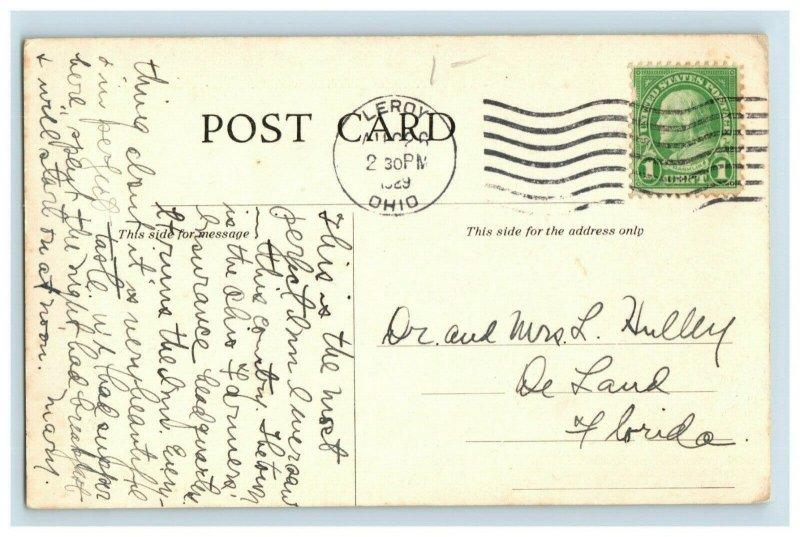 POST CARD
LEROY
2 30PM
1929
OHIO
UNITED STATES POSTAGE
FRANKLIN
1 CENT 1
This side for message
This side for the address only
This is the most
perfect Inn I ever saw
in this country. The town
is the Ohio Farmers'
Insurance headquarters
& runs the Inn. Every-
thing about it is very beautiful
& in perfect taste. We had supper
here, spent the night, had breakfast
& will start on at noon. Mary.
Dr. and Mrs. L. Hulley
De Land
Florida.